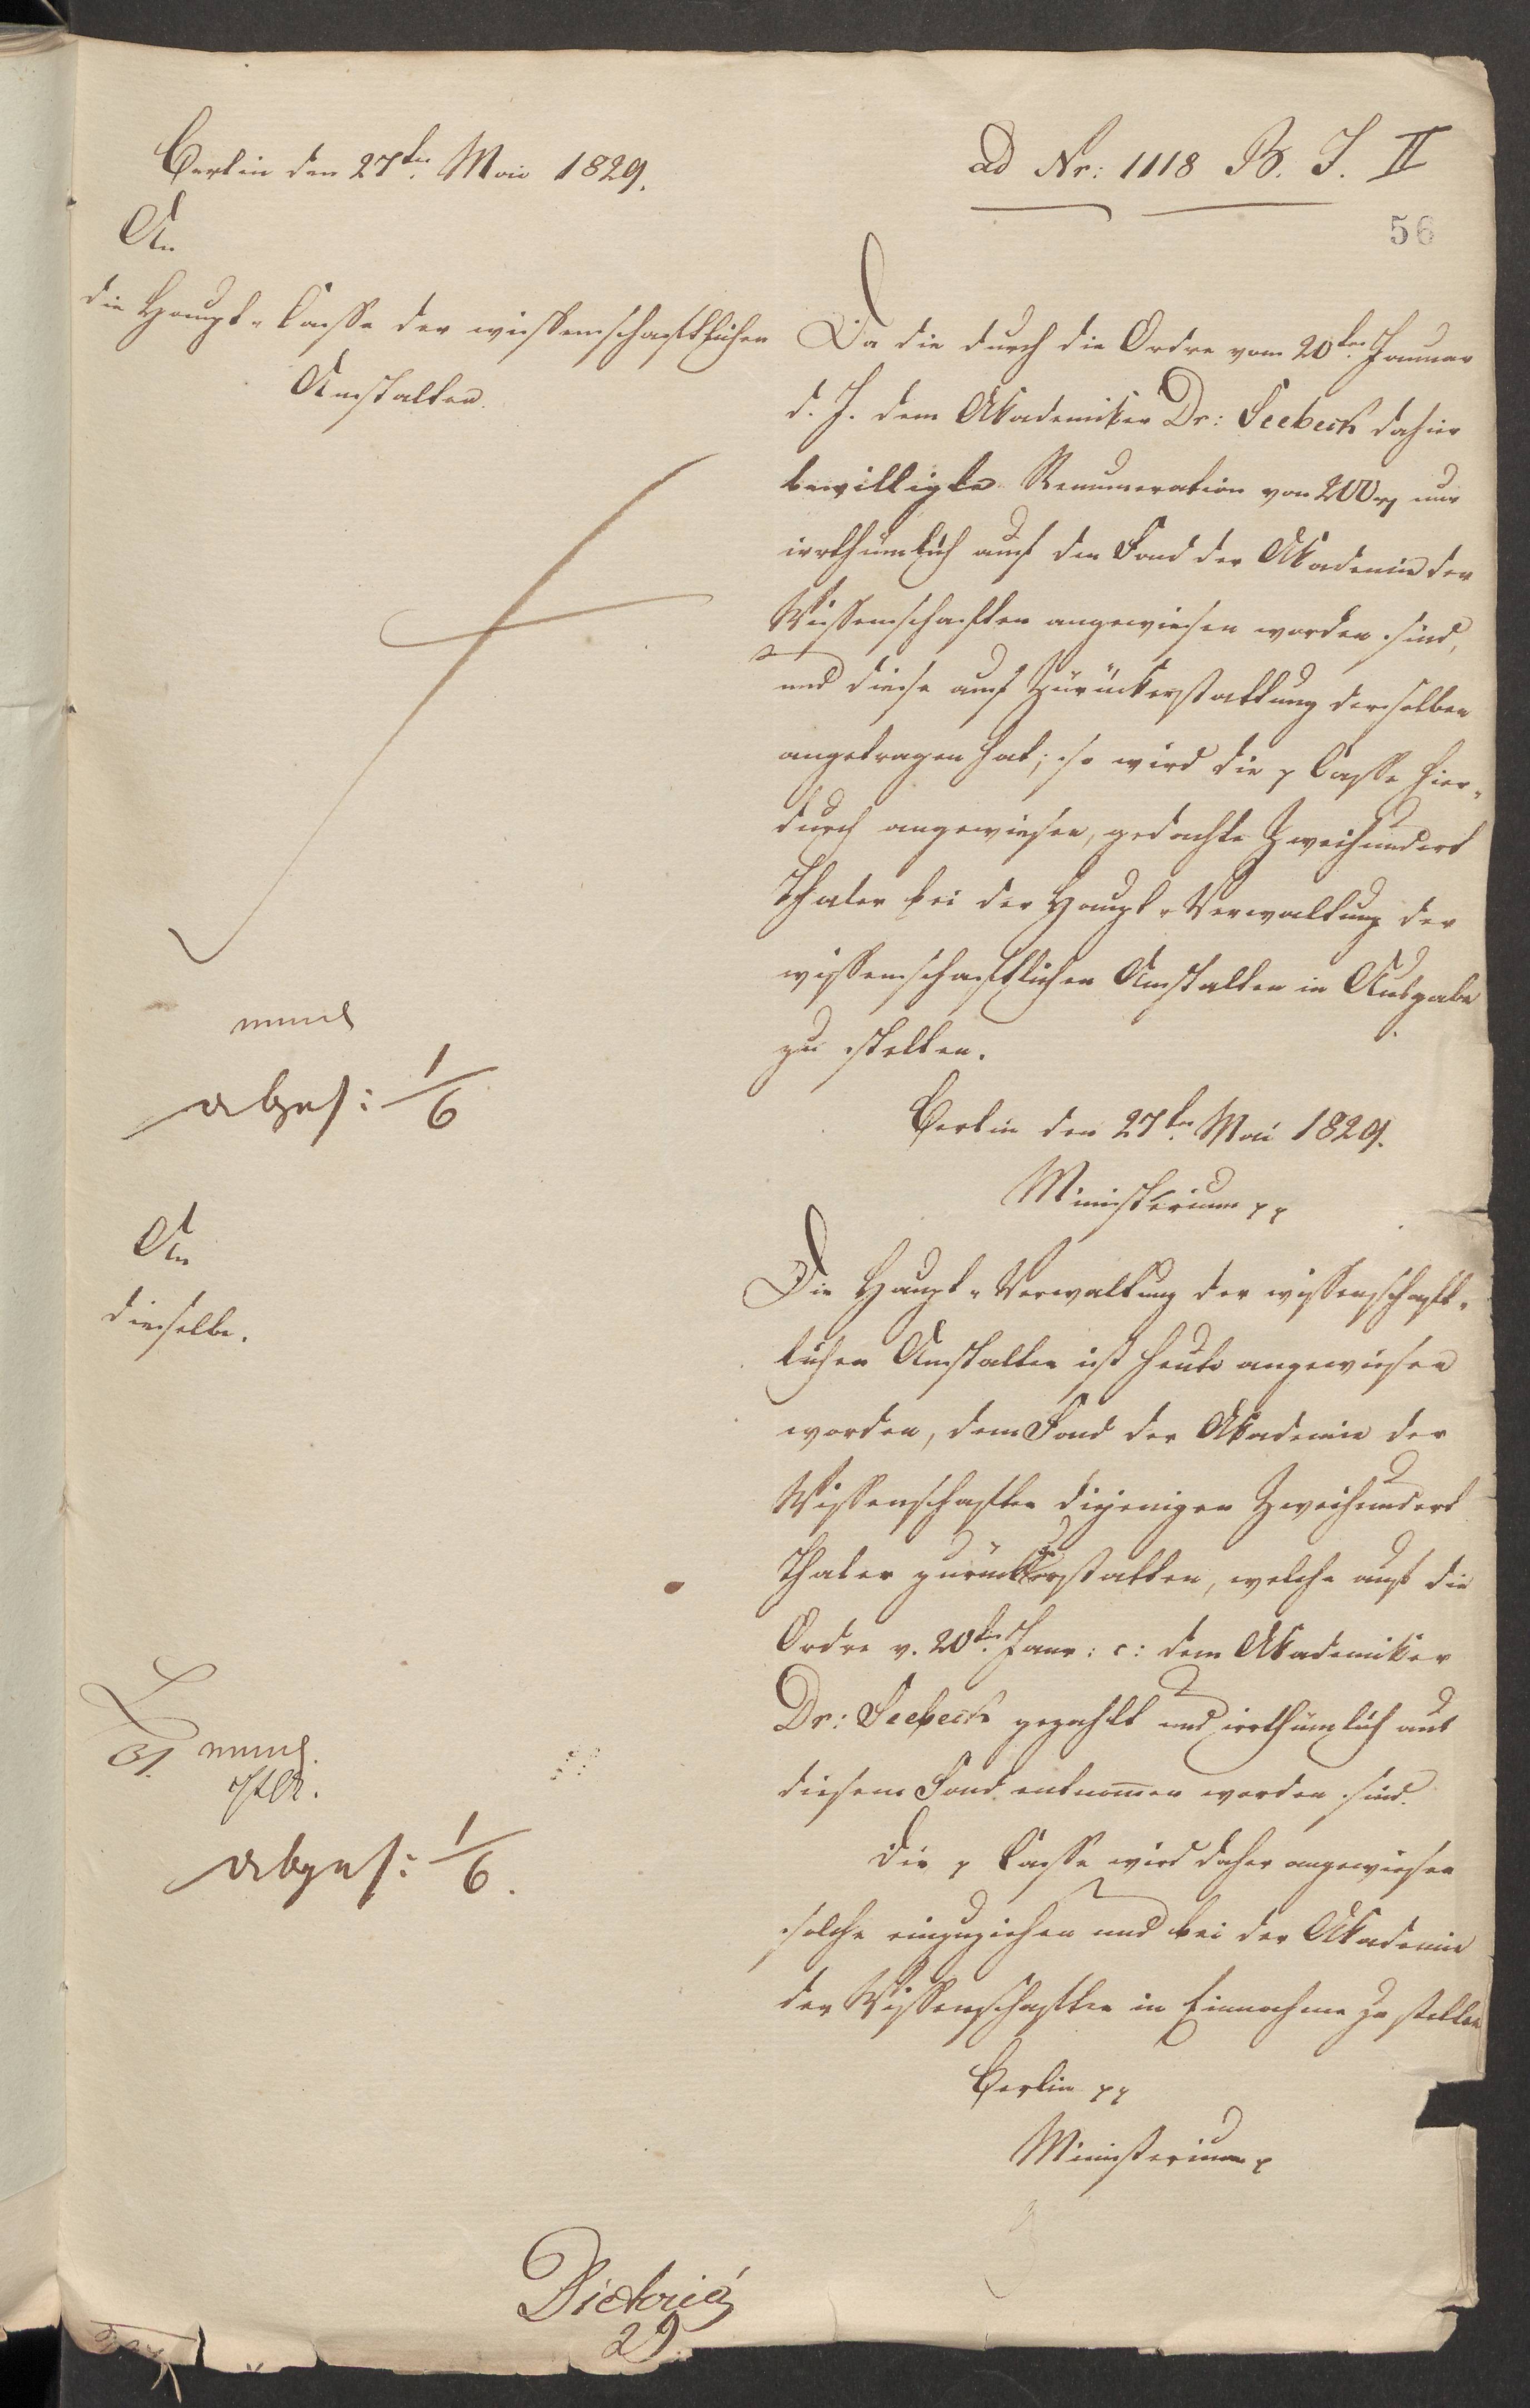 Berlin den 27ten Mai 1829.
ad Nr: 1118 B. J. II
56
An
die Haupt-Casse der wissenschaftlichen
Anstalten.
Da die durch die Ordre vom 20ten Januar
d. J. dem Akademiker Dr: Seebeck dahier
bewilligte Remuneration von 200 rt nur
irrthümlich auf den Fond der Akademie der
Wissenschaften angewiesen worden sind,
und diese auf Zurückerstattung derselben
angetragen hat; so wird die p Casse hier-
durch angewiesen, gedachte Zweihundert
Thaler bei der Haupt-Verwaltung der
wissenschaftlichen Anstalten in Ausgabe
zu stellen.
Berlin den 27ten Mai 1829.
Ministerium pp
mund
abges: 1/6
An
dieselbe.
Die Haupt-Verwaltung der wissenschaft-
lichen Anstalten ist heute angewiesen
worden, dem Fond der Akademie der
Wissenschaften diejenigen Zweihundert
Thaler zurück zu erstatten, welche auf die
Ordre v. 20ten Janr: c: dem Akademiker
Dr: Seebeck gezahlt und irrthümlich aus
diesem Fond entnomen worden sind.
Die p Casse wird daher angewiesen
solche einzuziehen und bei der Akademie
der Wissenschaften in Einnahme zu stellen
Berlin pp
Ministerium p
31. mund.
abges: 1/6.
Dieterici
29.